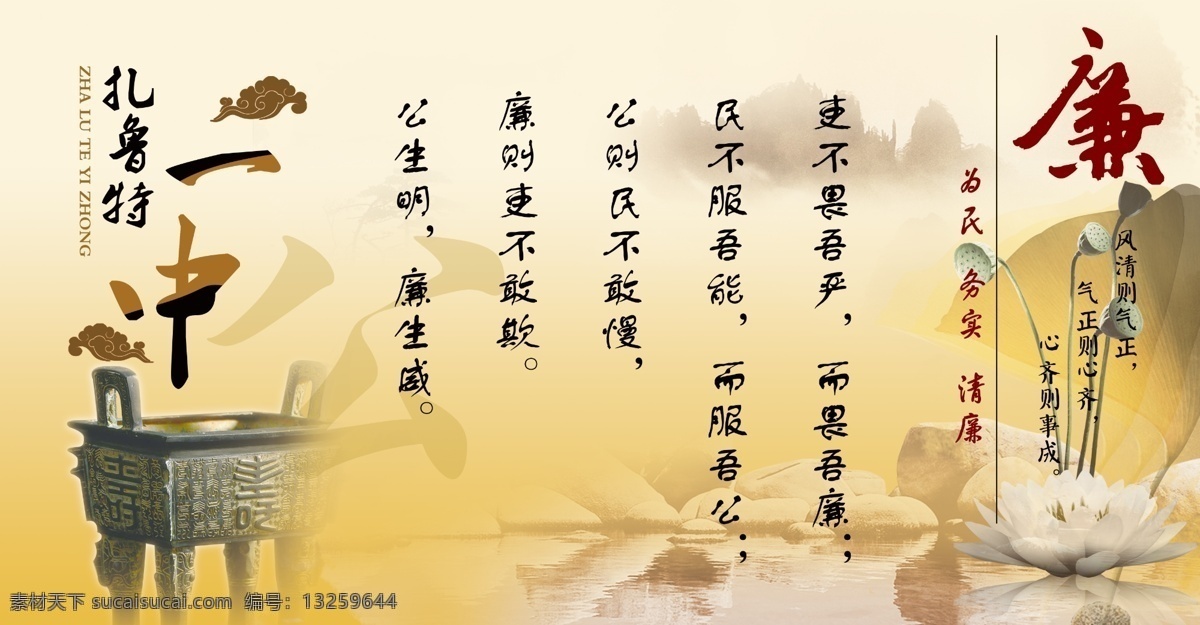 廉
风清则气正，
气正则心齐，
心齐则事成。
为民 务实 清廉
吏不畏吾严，而畏吾廉；
民不服吾能，而服吾公；
公则民不敢慢，
廉则吏不敢欺。
公生明，廉生威。
公
一中
扎鲁特
ZHA LU TE YI ZHONG
素材天下 sucaisucai.com 编号：13259644